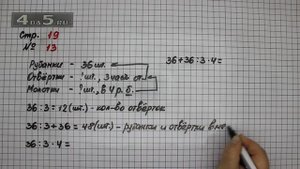 4DA5.RU
Стр. 19
№ 13
Рубанки – 36 шт.
Отвёртки – ? шт., 3 часть от
Молотки – ? шт., в 4 р. б.
36+36:3·4=
36:3=12(шт.) - кол-во отвёрток
36:3+36=48(шт.) - рубанки и отвёртки вме
36:3·4=